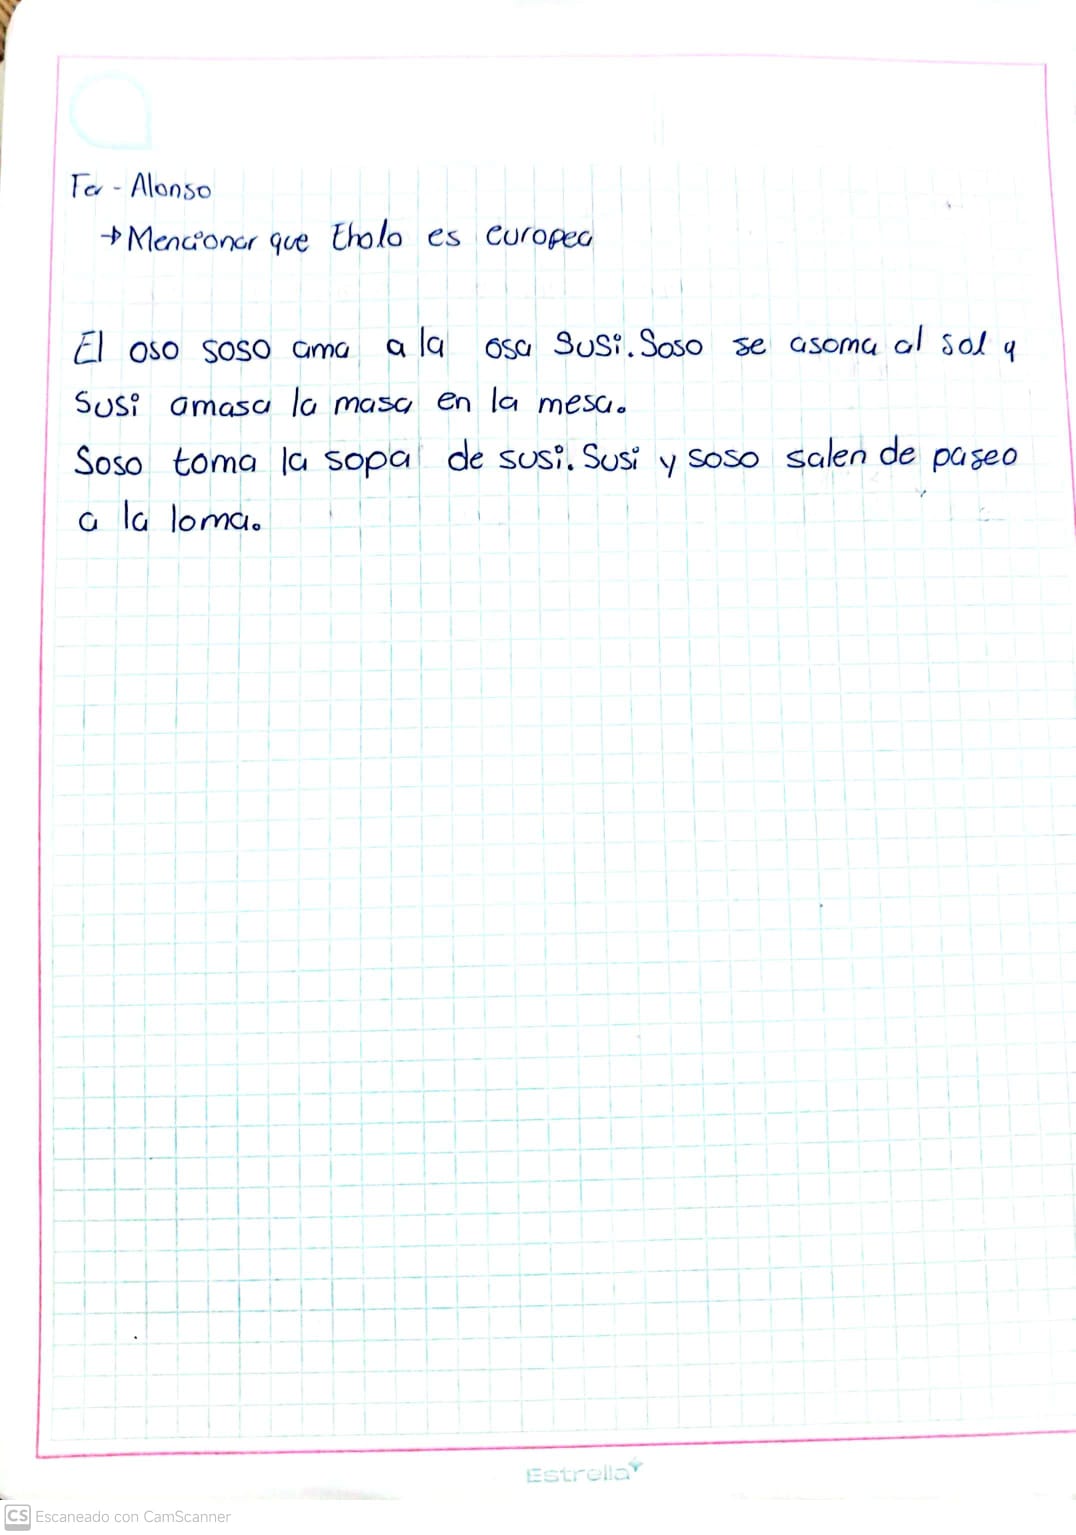 Fer - Alonso
→ Mencionar que Eholo es europea
El oso soso ama a la osa Susi. Soso se asoma al sol y
Susi amasa la masa en la mesa.
Soso toma la sopa de susi. Susi y soso salen de paseo
a la loma.
Estrella
CS Escaneado con CamScanner